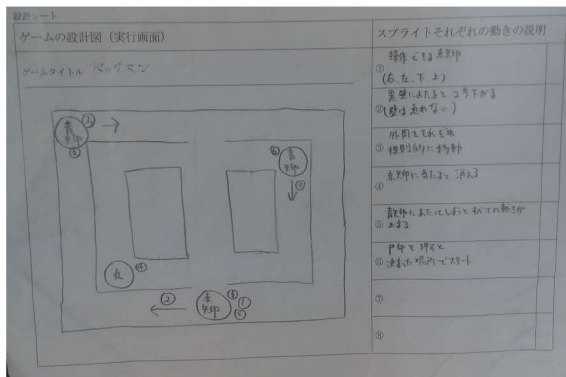 設計シート
ゲームの設計図（実行画面）
ゲームタイトル パックマン
③
青矢印
⑤
⑥
青矢印
③
丸
④
②
赤矢印
⑥
①
スプライトそれぞれの動きの説明
① 操作できる赤矢印
(右、左、下、上)
② 黒壁にあたると2歩下がる
(壁は通れない)
③ 外周をそれぞれ
規則的に移動
④ 赤矢印に当たると消える
⑤ 敵印にあたってしまうと全ての動きが
止まる
⑥ P印を押すと
決まった場所でスタート
⑦
⑧